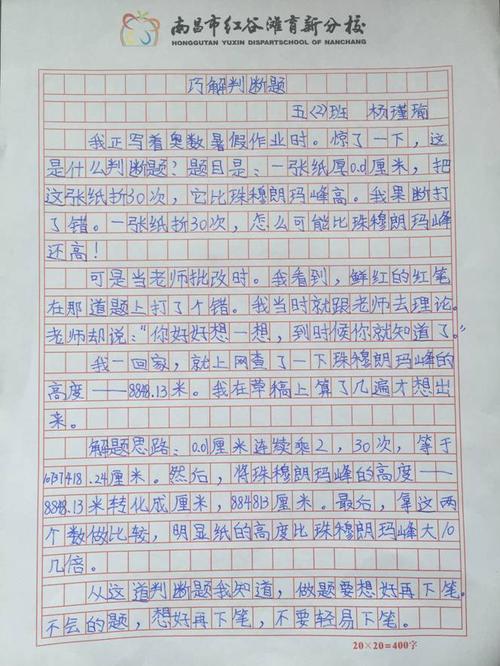 南昌市红谷滩育新分校
HONGGUTAN YUXIN DISPARTSCHOOL OF NANCHANG
巧解判断题
五(2)班 杨瑾瑜
我正写着奥数暑假作业时。惊了一下，这
是什么判断题？题目是：一张纸厚0.01厘米，把
这张纸折30次，它比珠穆朗玛峰高。我果断打
了错。一张纸折30次，怎么可能比珠穆朗玛峰
还高！
可是当老师批改时。我看到，鲜红的红笔
在那道题上打了个错。我当时就跟老师去理论。
老师却说：“你好好想一想，到时候你就知道了。”
我一回家，就上网查了一下珠穆朗玛峰的
高度——8848.13米。我在草稿上算了几遍才想出
来。
解题思路：0.01厘米连续乘2，30次，等于
10737418.24厘米。然后，将珠穆朗玛峰的高度——
8848.13米转化成厘米，884813厘米。最后，拿这两
个数做比较，明显纸的高度比珠穆朗玛峰大10
几倍。
从这道判断题我知道，做题要想好再下笔。
不会的题，想好再下笔，不要轻易下笔。
20×20=400字